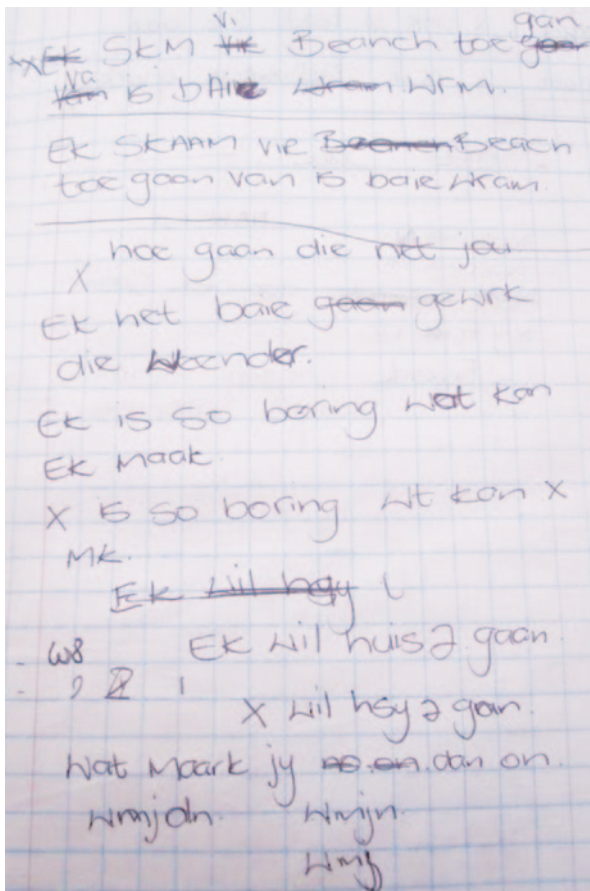 vi gan
xx Ek SKM vir Beanch toe gaan
va
is bAie wram wrm.
EK SKAAM vir Beanch Beach
toe gaan van is baie wram.
hoe gaan die net jou
X
Ek het baie gaan gewrk
die Weender.
Ek is so boring wat kan
Ek maak.
X is so boring wt kan X
MK.
Ek wil hsy
EK wil huis 2 gaan.
w8
, 2 1
X wil hsy 2 gan.
Wat Maark jy dan on.
wmjdn. wmjn.
wmj